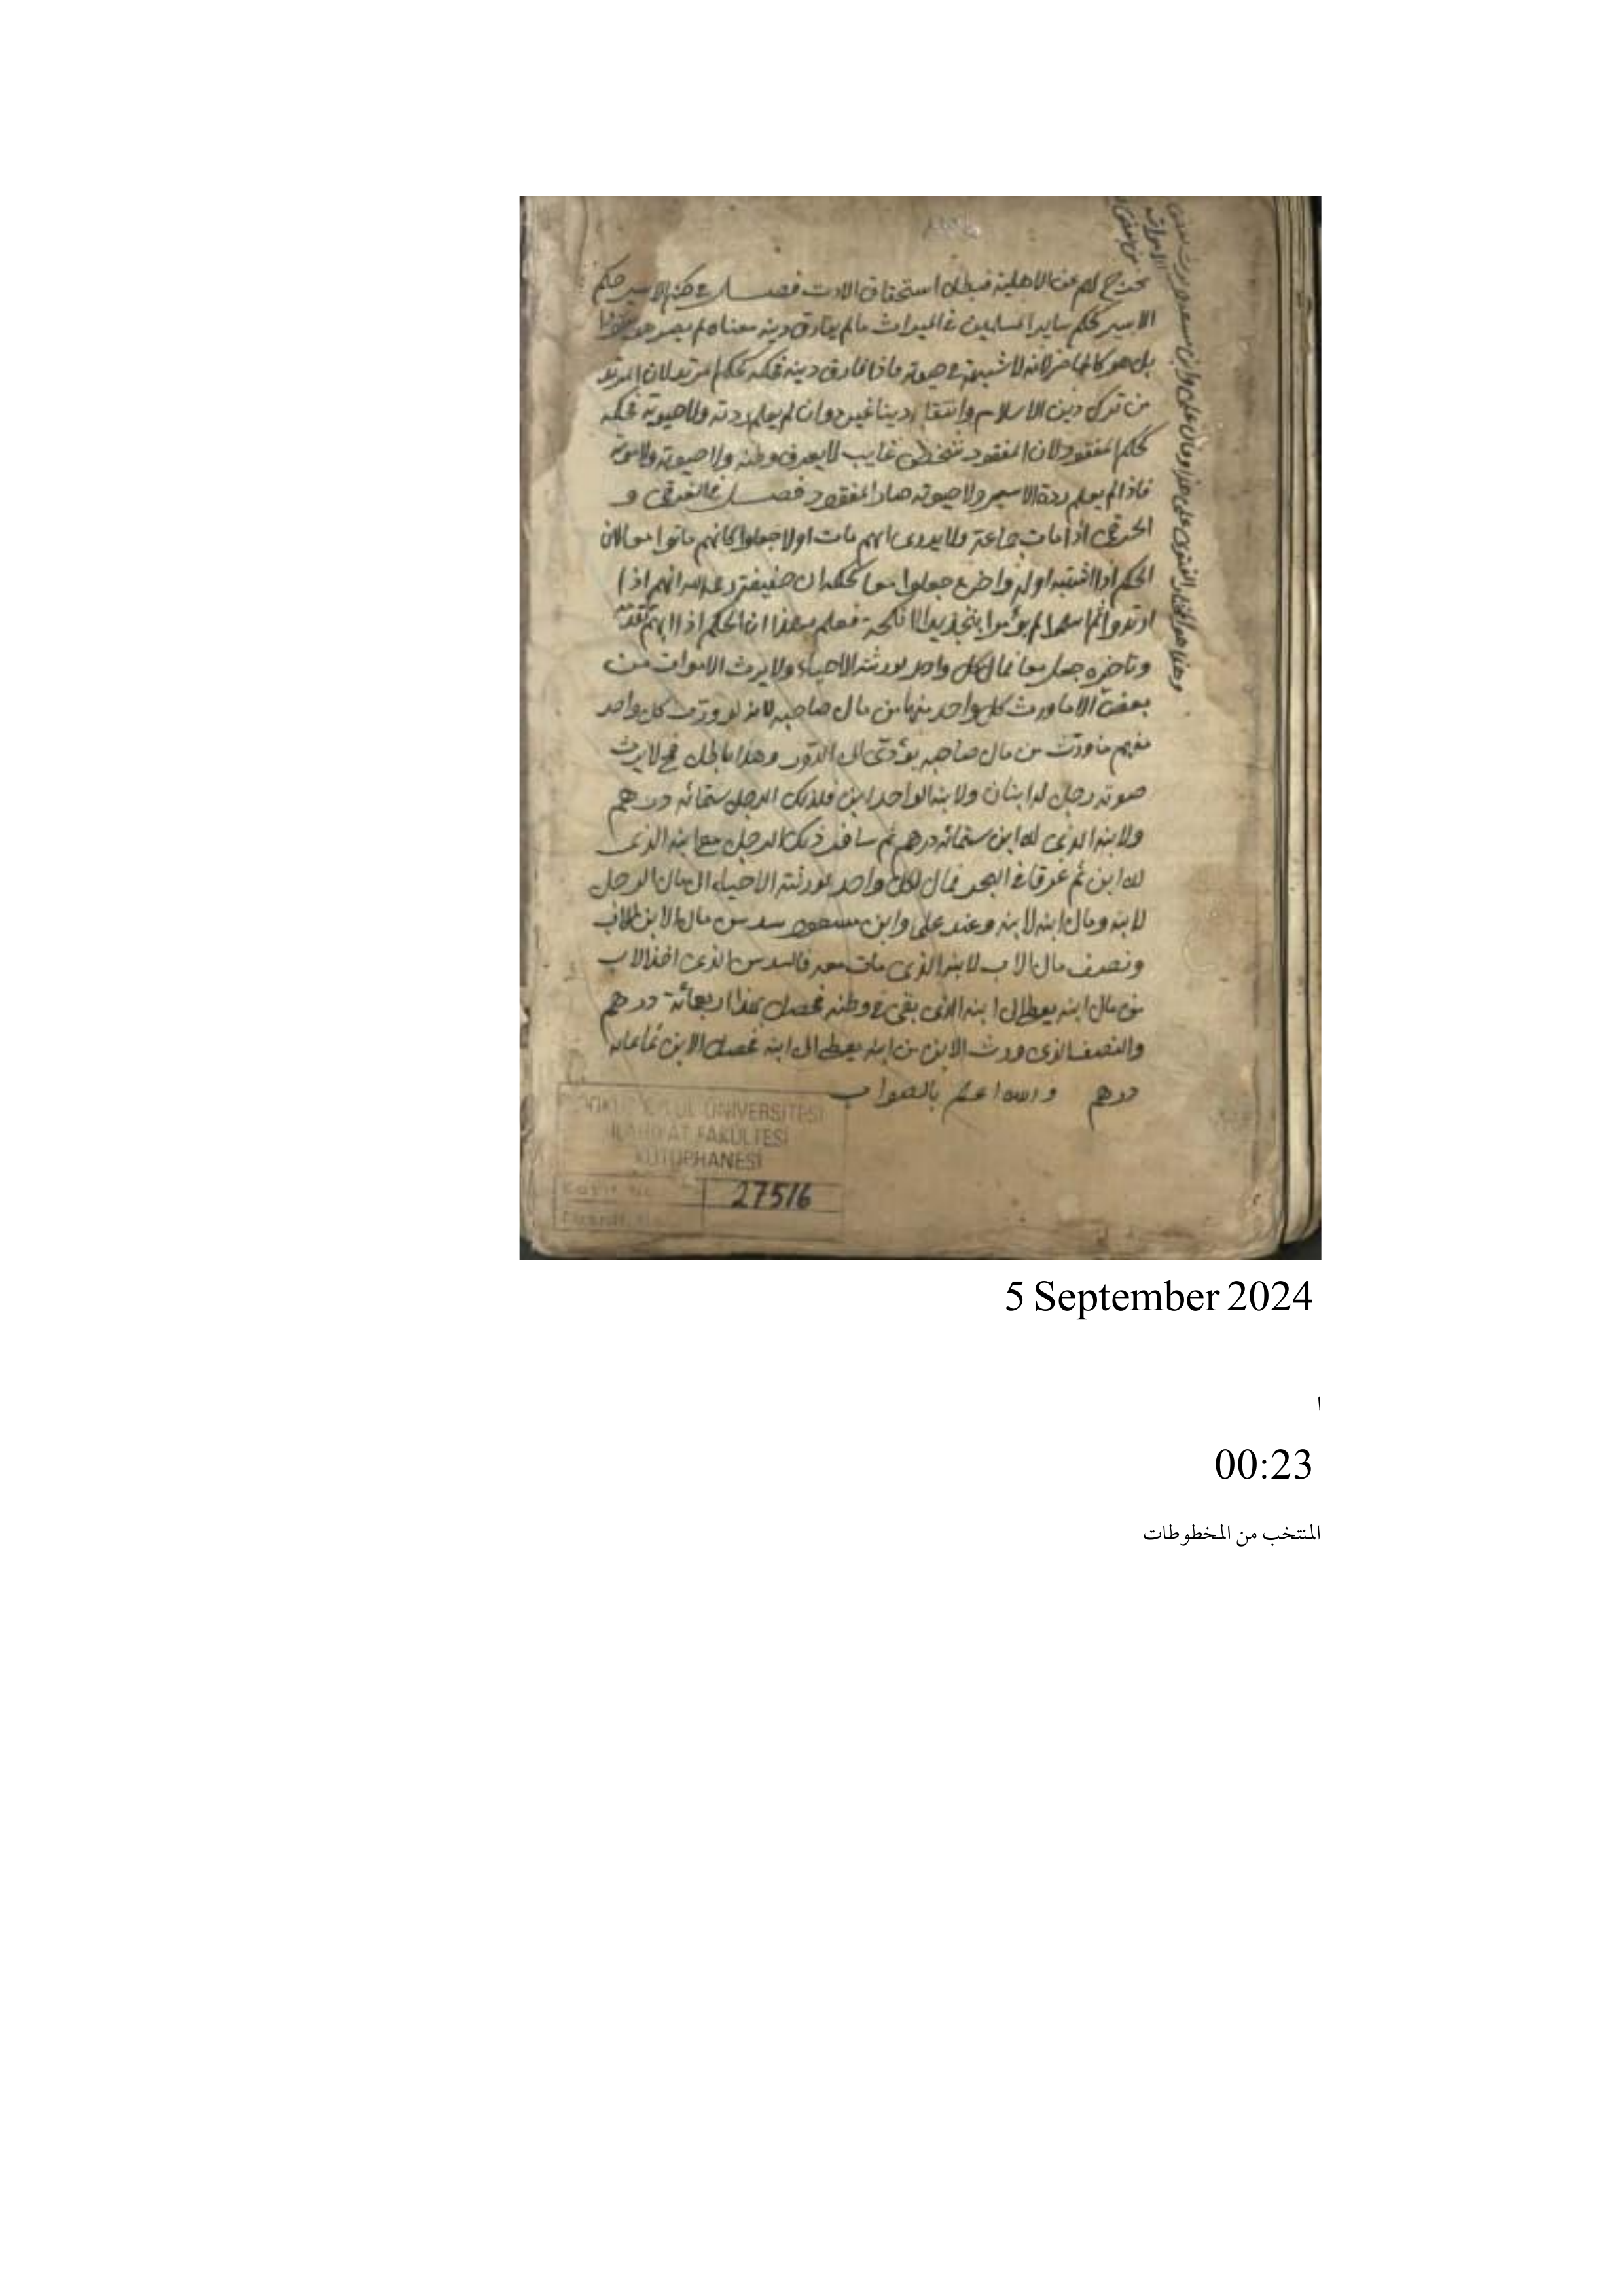 يخرج لهم عن الاهلية فيبطل استحقاق الارث فصل في حكم الاسير حكم
الاسير كحكم ساير المسلمين في الميراث ما لم يفارق دينه معناه لم يصر هو
بل هو كالحاضر لانه لا شبهة في حيوته فاذا فارق دينه فحكمه كحكم المرتد لان المرتد
من ترك دين الاسلام وانتقل دينا غيره وان لم يعلم ردته ولا حيوته فحكمه
كحكم المفقود لان المفقود شخص غايب لا يعرف وطنه ولا حيوته ولا موته
فاذا لم يعلم ردة الاسير ولا حيوته صار المفقود فصل في الغرقى و
الحرقى اذا مات جماعة ولا يدرى ايهم مات اولا جعلوا كانهم ماتوا معا لان
الحكم اذا اشتبه اوله واخره جعلوا معا كحكم ابى حنيفة رحمه الله انهم اذا
ارتدوا ثم اسلموا لم يؤمروا بتجديد الانكحة فعلم بهذا ان الحكم اذا ابهم تقدمه
وتاخره جعل معا فمال كل واحد لورثته الاحياء ولا يرث الاموات من
بعض الا ما ورث كل واحد منهما من مال صاحبه لانه لو ورث كل واحد
منهم ما ورث من مال صاحبه يؤدى الى الدور وهذا باطل فح لا يرث
صورته رجل له ابنان ولابنه الواحد ابن فلذلك الرجل ستمائه درهم
ولابنه الذى له ابن ستمائه درهم ثم سافر ذلك الرجل مع ابنه الذى
له ابن ثم غرقا في البحر فمال لكل واحد لورثته الاحياء اى مال الرجل
لابنه ومال ابنه لابنه وعند على وابن مسعود سدس مال الابن للاب
ونصف مال الاب لابنه الذى مات معه فالسدس الذى اخذ الاب
من مال ابنه يعطى الى ابنه الذى بقى في وطنه فحصل بهذا اربعمائة درهم
والنصف الذى ورث الابن من ابيه يعطى الى ابنه فحصل الابن ثمانمائه
درهم والله اعلم بالصواب
وهذا هو المختار الفتوى على هذا وقال على وابن مسعود يرث بعض
الاموات
من بعض
DOKUZ EYLÜL ÜNİVERSİTESİ
İLAHİYAT FAKÜLTESİ
KÜTÜPHANESİ
Kayıt No
27516
Tasnif No
5 September 2024
ا
00:23
المنتخب من المخطوطات